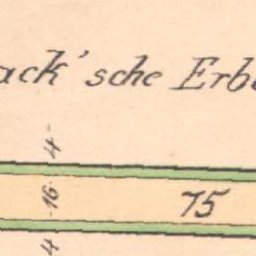 ack'sche Erb
4
16
75
4